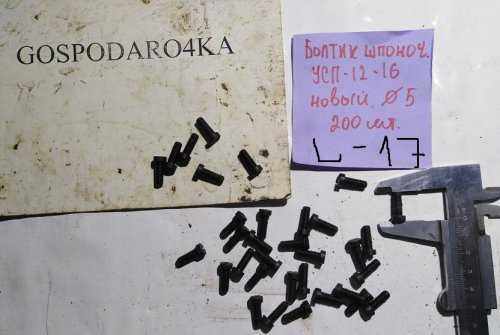 GOSPODARO4KA
Болтик шпоноч.
УСП-12-16
новый, Ø 5
200 шт.
L-17